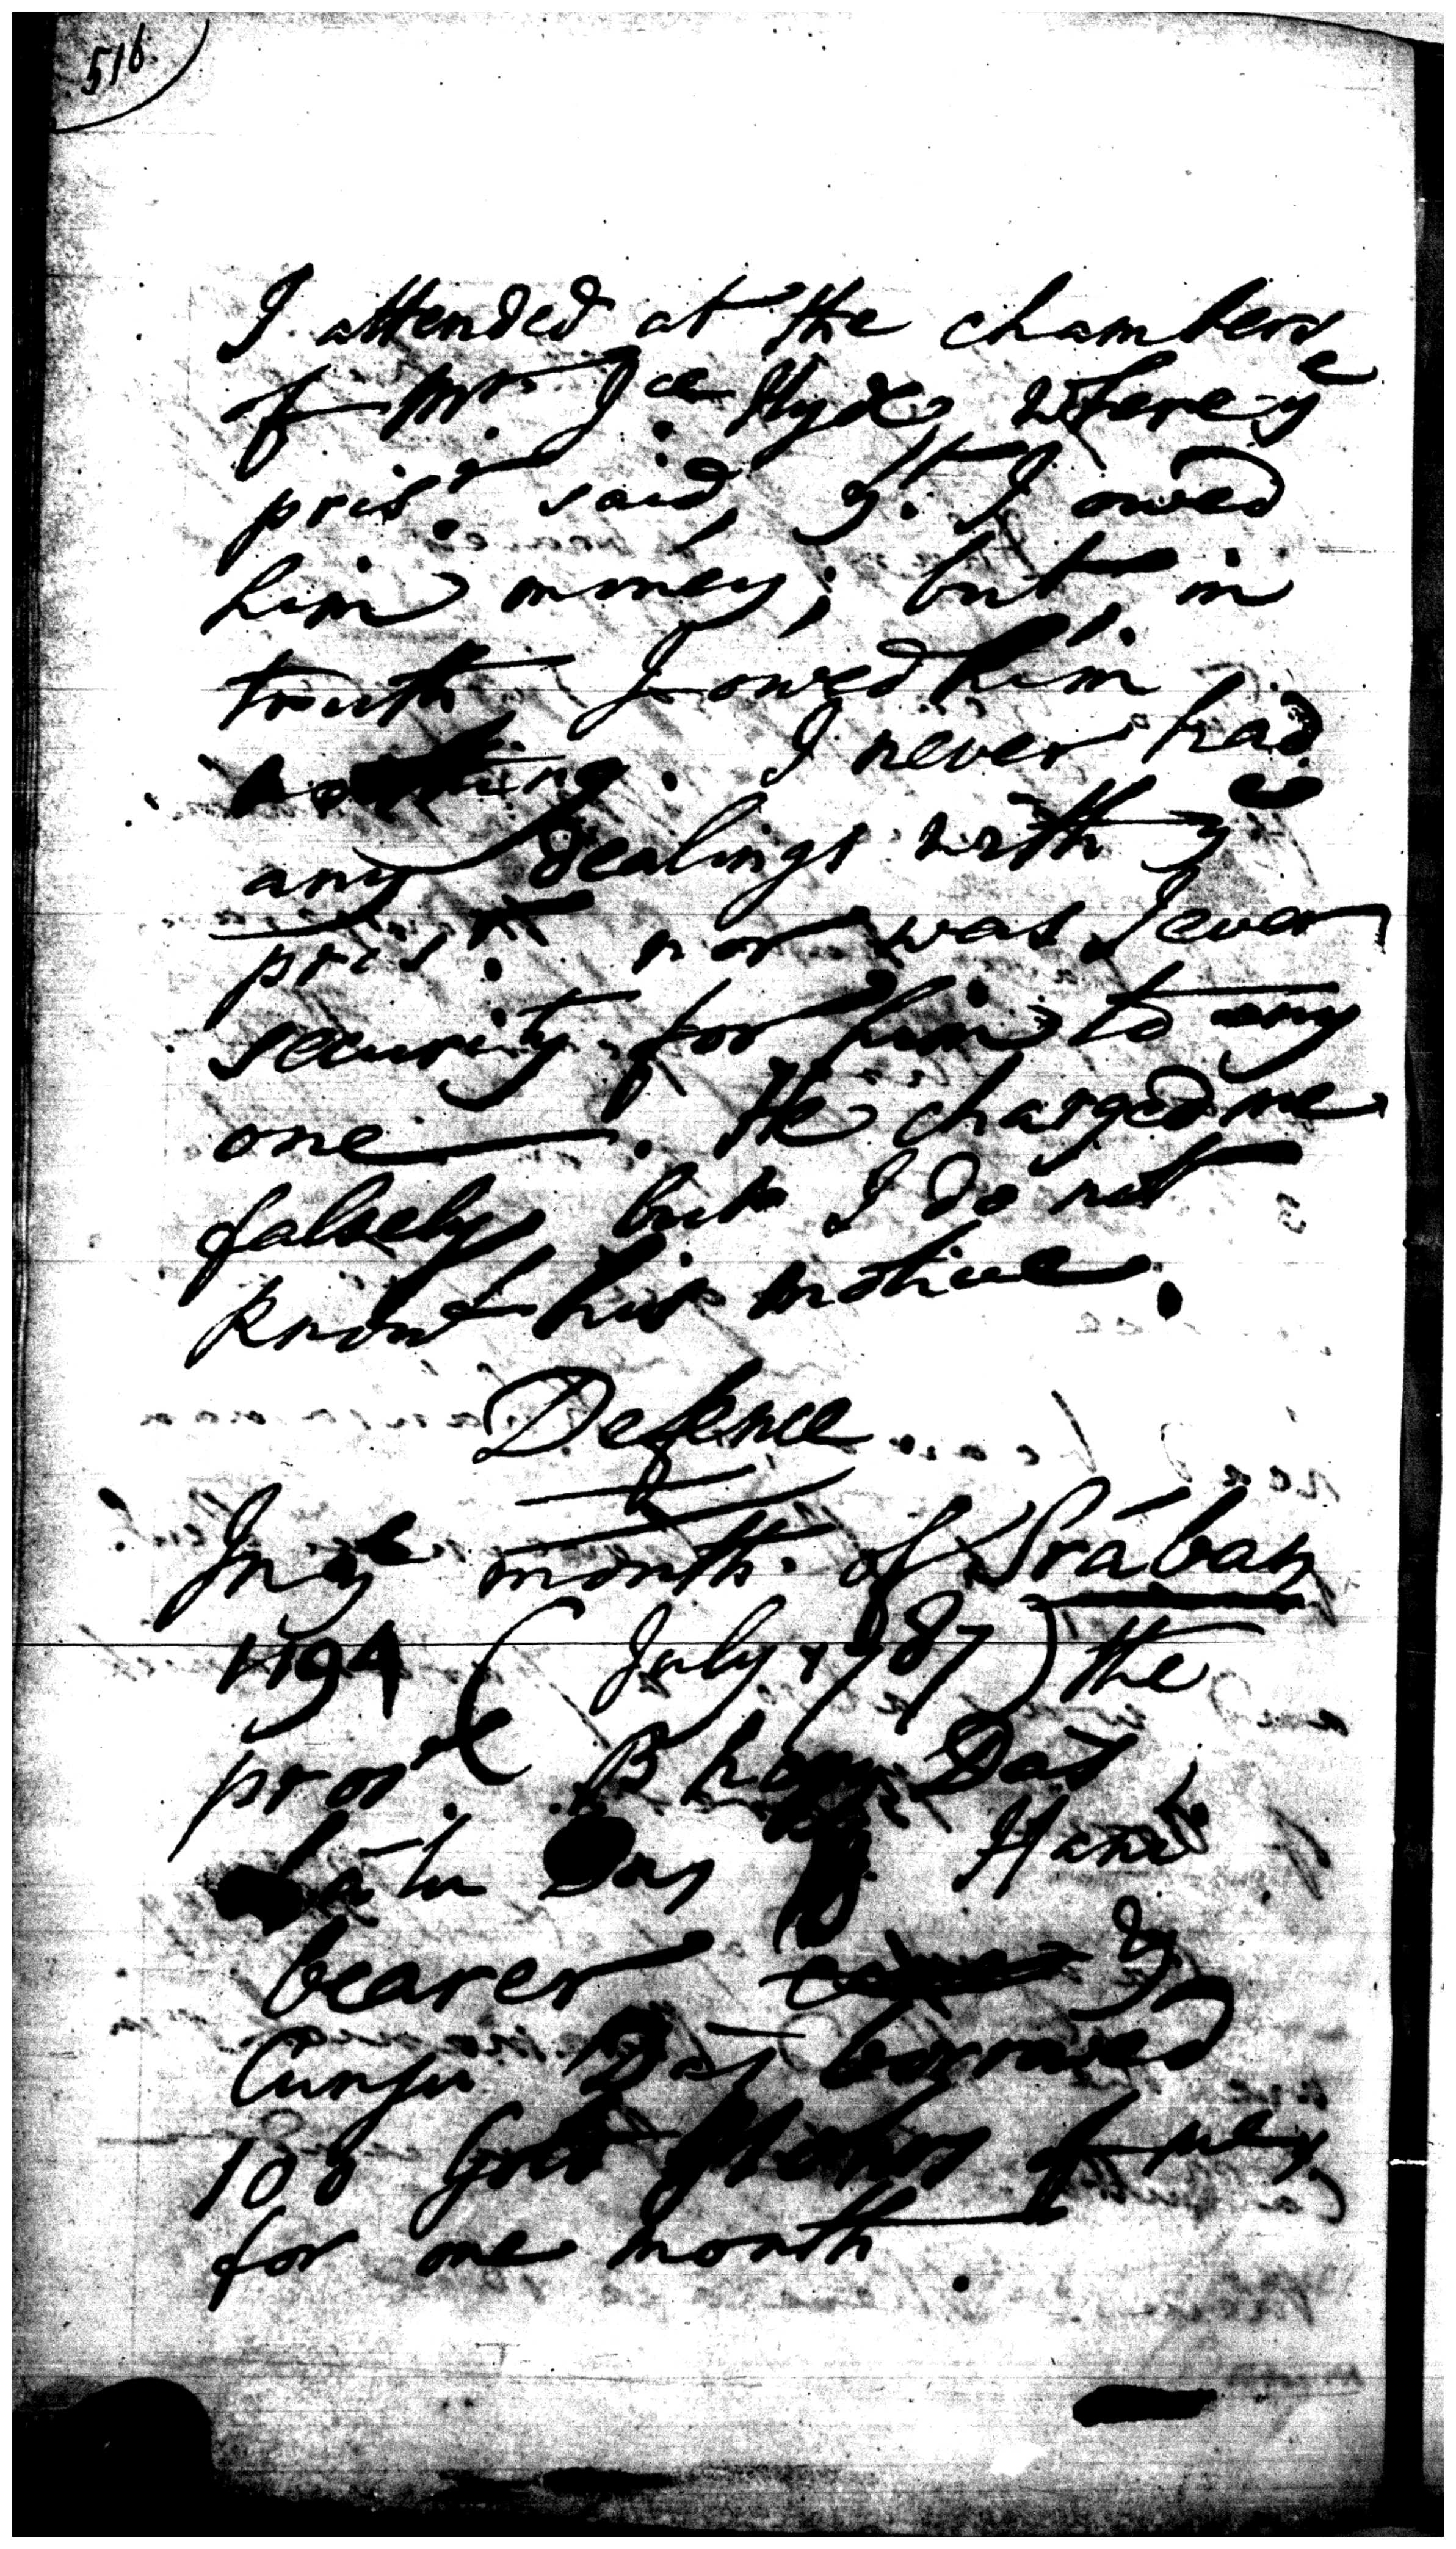 516
I attended at the chambers
of Mr. Jce Hyde, where ye
prisr. said, yt. I owed
him money; but, in
truth I owed him
nothing. I never had
any dealings with ye
prisr. nor was I ever
security for him to any
one. He charged me
falsely, but I do not
know his motive.
Defence
In ye month of Srában
1194 (July 1787) the
prorx Das
Das
bearer &
Das borrowed
100 Gold Mohrs of me
for one month.